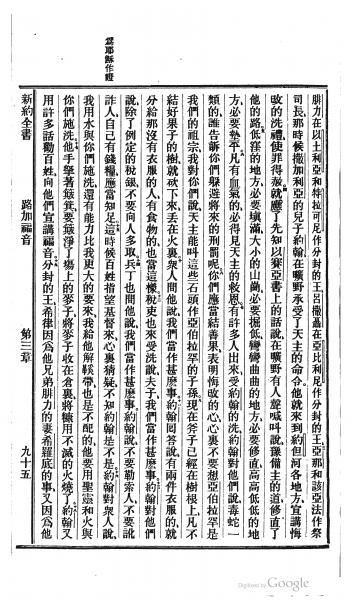 腓力在以土利亞和特拉可尼作分封的王呂撒聶在亞比利尼作分封的王亞那和該亞法作祭
司長那時候撒加利亞的兒子約翰在曠野承受了天主的命令他就來到約但河各地方宣講悔
改的洗禮使罪得赦就應了先知以賽亞書上的話說在曠野有人聲喊叫說豫備主的道修直了
他的路低窪的地方必要填滿大小的山岡必要掘低彎彎曲曲的地方必要修直高高低低的地
方必要墊平凡有血氣的必得見天主的救恩有許多人出來受約翰的洗約翰對他們說毒蛇一
類的誰告訴你們躱避將來的刑罰呢你們應當結善果表明悔改的心心裏不要想亞伯拉罕是
我們的祖宗我對你們說天主能叫這些石頭作亞伯拉罕的子孫現在斧子已經在樹根上凡不
結好果子的樹就砍下來丟在火裏衆人問他說我們當作甚麽事約翰囘答說有兩件衣服的就
分給那沒有衣服的人有食物的也當這樣稅吏也來受洗說夫子我們當作甚麽事約翰對他們
說除了例定的稅銀不要向人多取兵丁也問他說我們當作甚麽事約翰說不要勒索人不要訛
詐人自己有錢糧應當知足這時候百姓指望基督來心裏猜疑不知約翰是不是約翰對衆人說
我用水與你們施洗還有能力比我更大的要來我給他解鞋帶也是不配的他要用聖靈和火與
你們施洗他手拏著簸箕要簸淨了場上的麥子將麥子收在倉裏將糠用不滅的火燒了約翰又
用許多話勸百姓向他們宣講福音分封的王希律因為他兄弟腓力的妻希羅底的事又因為他
新約全書
路加福音
第三章
九十五
爲耶穌作證
Digitized by Google